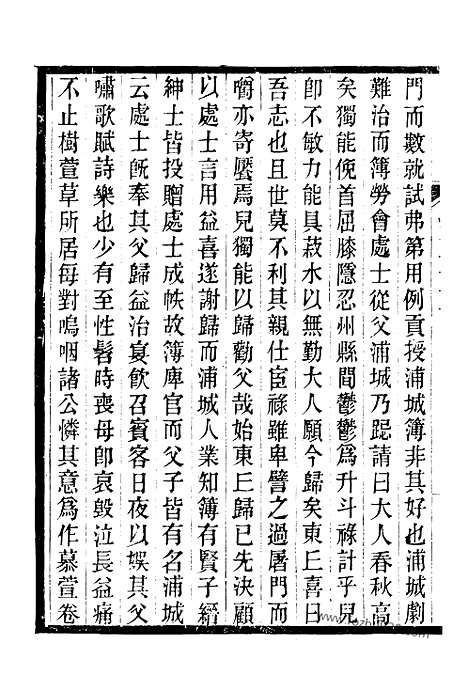 門而數就試弗第用例貢授浦城簿非其好也浦城劇
難治而簿勞會處士從父浦城乃跽請曰大人春秋高
矣獨能俛首屈膝隱忍州縣間鬱鬱爲升斗祿計乎兒
卽不敏力能具菽水以無勤大人願今歸矣東丘喜曰
吾志也且世莫不利其親仕宦祿雖卑譬之過屠門而
嚼亦寄饜焉兒獨能以歸勸父哉始東丘歸已先決顧
以處士言用益喜遂謝歸而浦城人業知簿有賢子縉
紳士皆投贈處士成帙故簿庫官而父子皆有名浦城
云處士旣奉其父歸益治宴飮召賓客日夜以娛其父
嘯歌賦詩樂也少有至性髫時喪母卽哀毀泣長益痛
不止樹萱草所居每對嗚咽諸公憐其意爲作慕萱卷